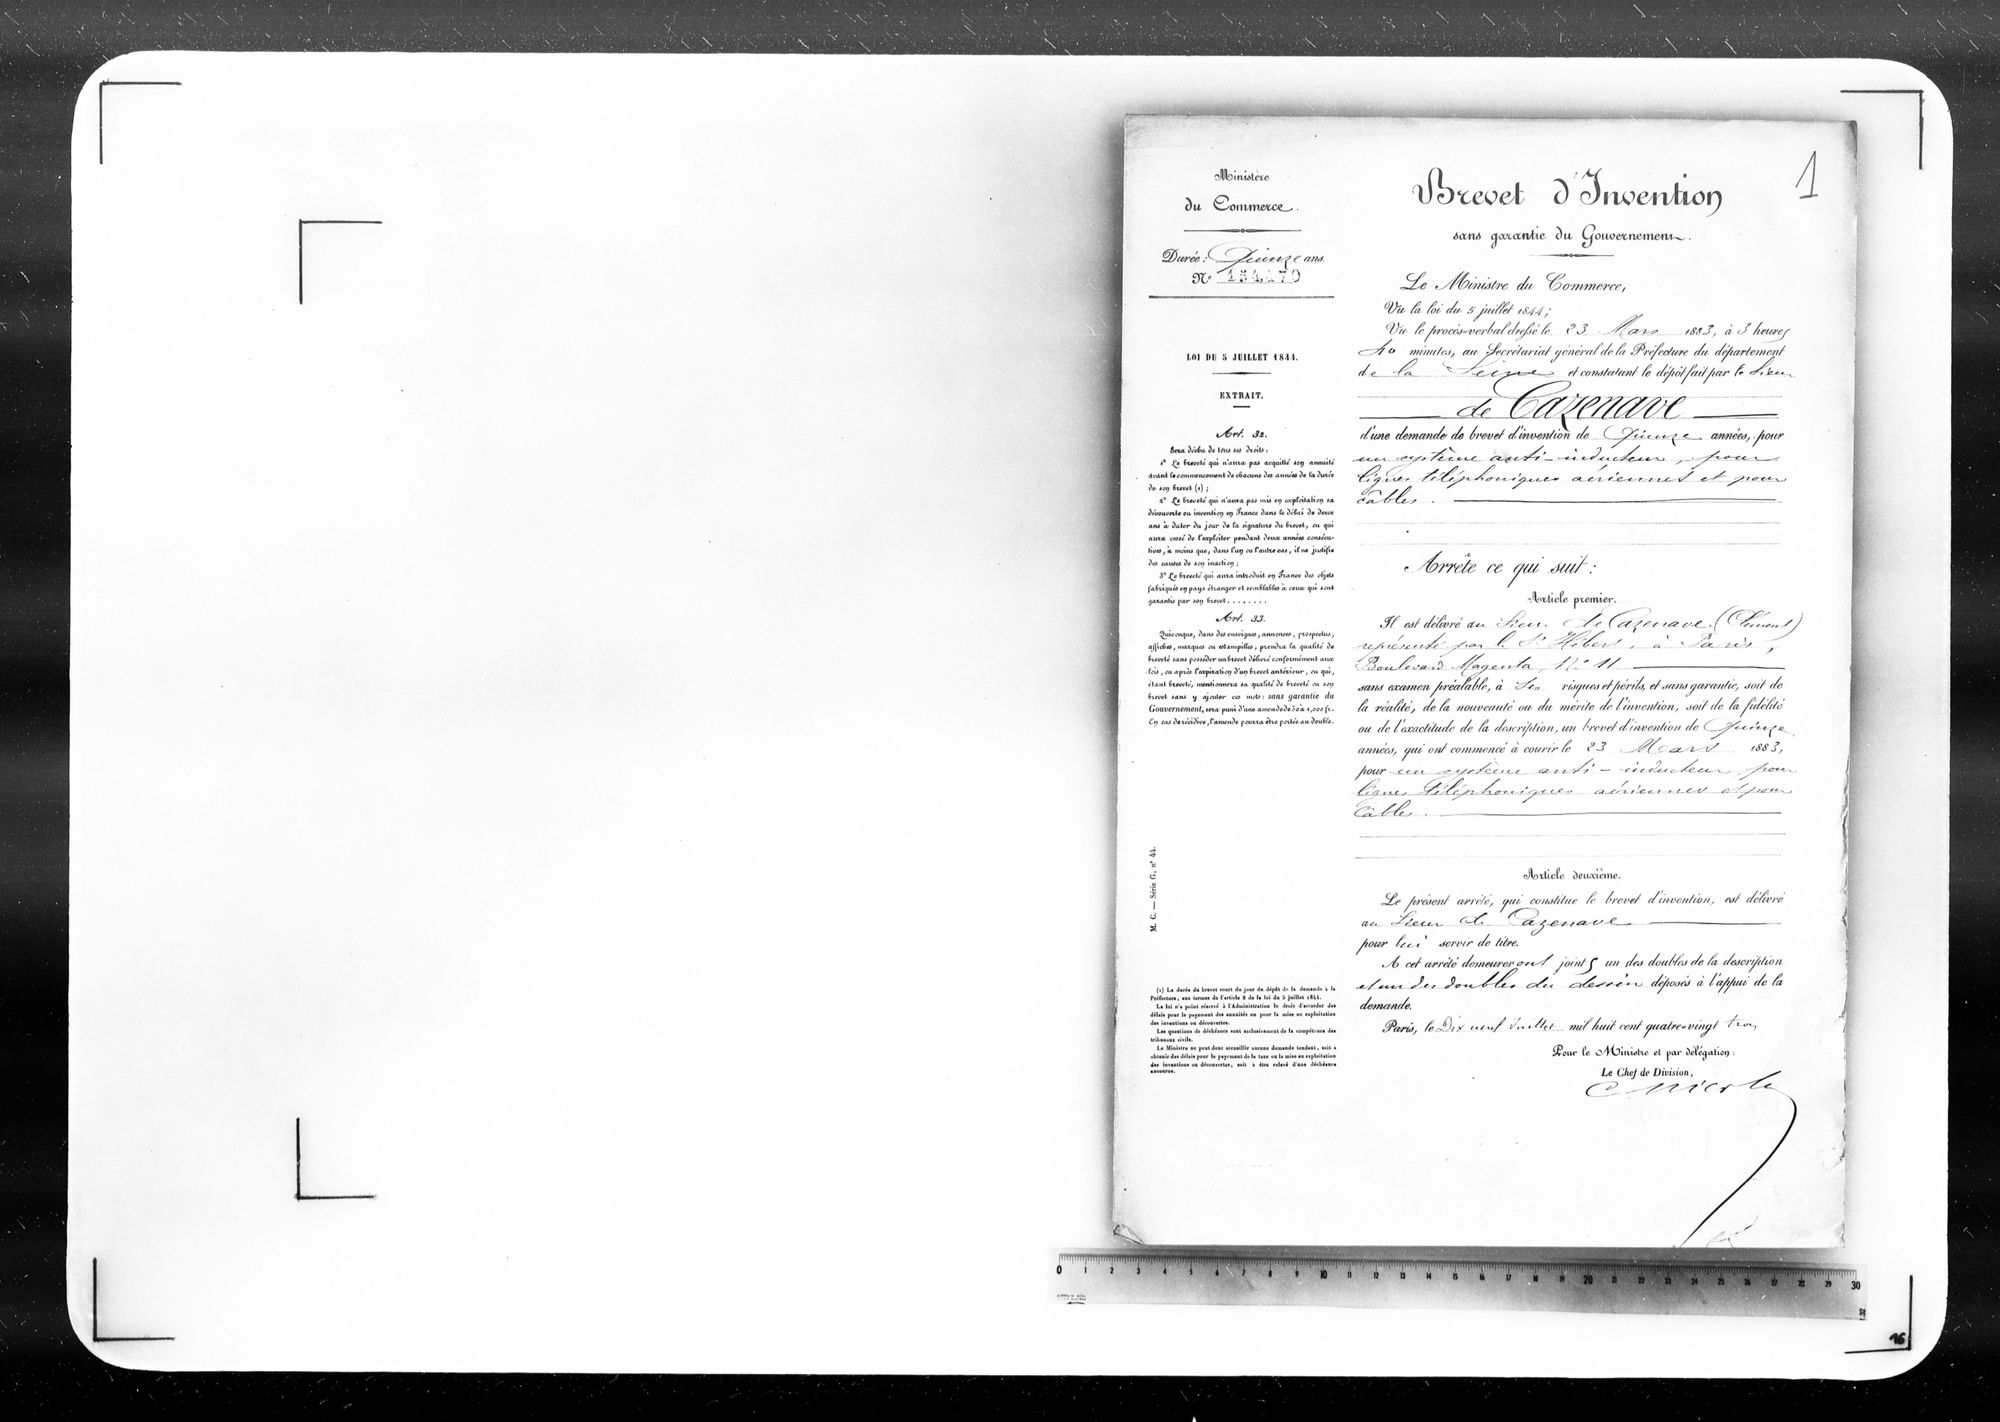 Ministère
du Commerce.
Durée : Quinze ans.
N° 154170
LOI DU 5 JUILLET 1844.
EXTRAIT.
Art. 32.
Sera déchu de tous ses droits :
1° Le breveté qui n'aura pas acquitté son annuité
avant le commencement de chacune des années de la durée
de son brevet (1) ;
2° Le breveté qui n'aura pas mis en exploitation sa
découverte ou invention en France dans le délai de deux
ans à dater du jour de la signature du brevet, ou qui
aura cessé de l'exploiter pendant deux années consécu-
tives, à moins que, dans l'un ou l'autre cas, il ne justifie
des causes de son inaction ;
3° Le breveté qui aura introduit en France des objets
fabriqués en pays étranger et semblables à ceux qui sont
garantis par son brevet........
Art. 33.
Quiconque, dans des enseignes, annonces, prospectus,
affiches, marques ou estampilles, prendra la qualité de
breveté sans posséder un brevet délivré conformément aux
lois, ou après l'expiration d'un brevet antérieur, ou qui,
étant breveté, mentionnera sa qualité de breveté ou son
brevet sans y ajouter ces mots : sans garantie du
Gouvernement, sera puni d'une amende de 50 à 1,000 fr.
En cas de récidive, l'amende pourra être portée au double.
M. C. — Série G, n° 44.
(1) La durée du brevet court du jour du dépôt de la demande à la
Préfecture, aux termes de l'article 8 de la loi du 5 juillet 1844.
La loi n'a point réservé à l'Administration le droit d'accorder des
délais pour le payement des annuités ou pour la mise en exploitation
des inventions ou découvertes.
Les questions de déchéance sont exclusivement de la compétence des
tribunaux civils.
Le Ministre ne peut donc accueillir aucune demande tendant, soit à
obtenir des délais pour le payement de la taxe ou la mise en exploitation
des inventions ou découvertes, soit à être relevé d'une déchéance
encourue.
1
Brevet d'Invention
sans garantie du Gouvernement.
Le Ministre du Commerce,
Vu la loi du 5 juillet 1844 ;
Vu le procès-verbal dressé le 23 Mars 1883, à 3 heures
40 minutes, au Secrétariat général de la Préfecture du département
de la Seine et constatant le dépôt fait par le Sieur
de Cazenave
d'une demande de brevet d'invention de Quinze années, pour
un système anti-inducteur, pour
lignes téléphoniques aériennes et pour
câbles.
Arrête ce qui suit :
Article premier.
Il est délivré au Sieur de Cazenave (Clément)
représenté par le Sr Hébert, à Paris,
Boulevard Magenta, N° 11
sans examen préalable, à ses risques et périls, et sans garantie, soit de
la réalité, de la nouveauté ou du mérite de l'invention, soit de la fidélité
ou de l'exactitude de la description, un brevet d'invention de Quinze
années, qui ont commencé à courir le 23 Mars 1883,
pour un système anti-inducteur, pour
lignes téléphoniques aériennes et pour
câbles.
Article deuxième.
Le présent arrêté, qui constitue le brevet d'invention, est délivré
au Sieur de Cazenave
pour lui servir de titre.
A cet arrêté demeureront joints un des doubles de la description
et un des doubles du dessin déposés à l'appui de la
demande.
Paris, le Dix neuf Juillet mil huit cent quatre-vingt trois
Pour le Ministre et par délégation :
Le Chef de Division,
0 1 2 3 4 5 6 7 8 9 10 11 12 13 14 15 16 17 18 19 20 21 22 23 24 25 26 27 28 29 30
16